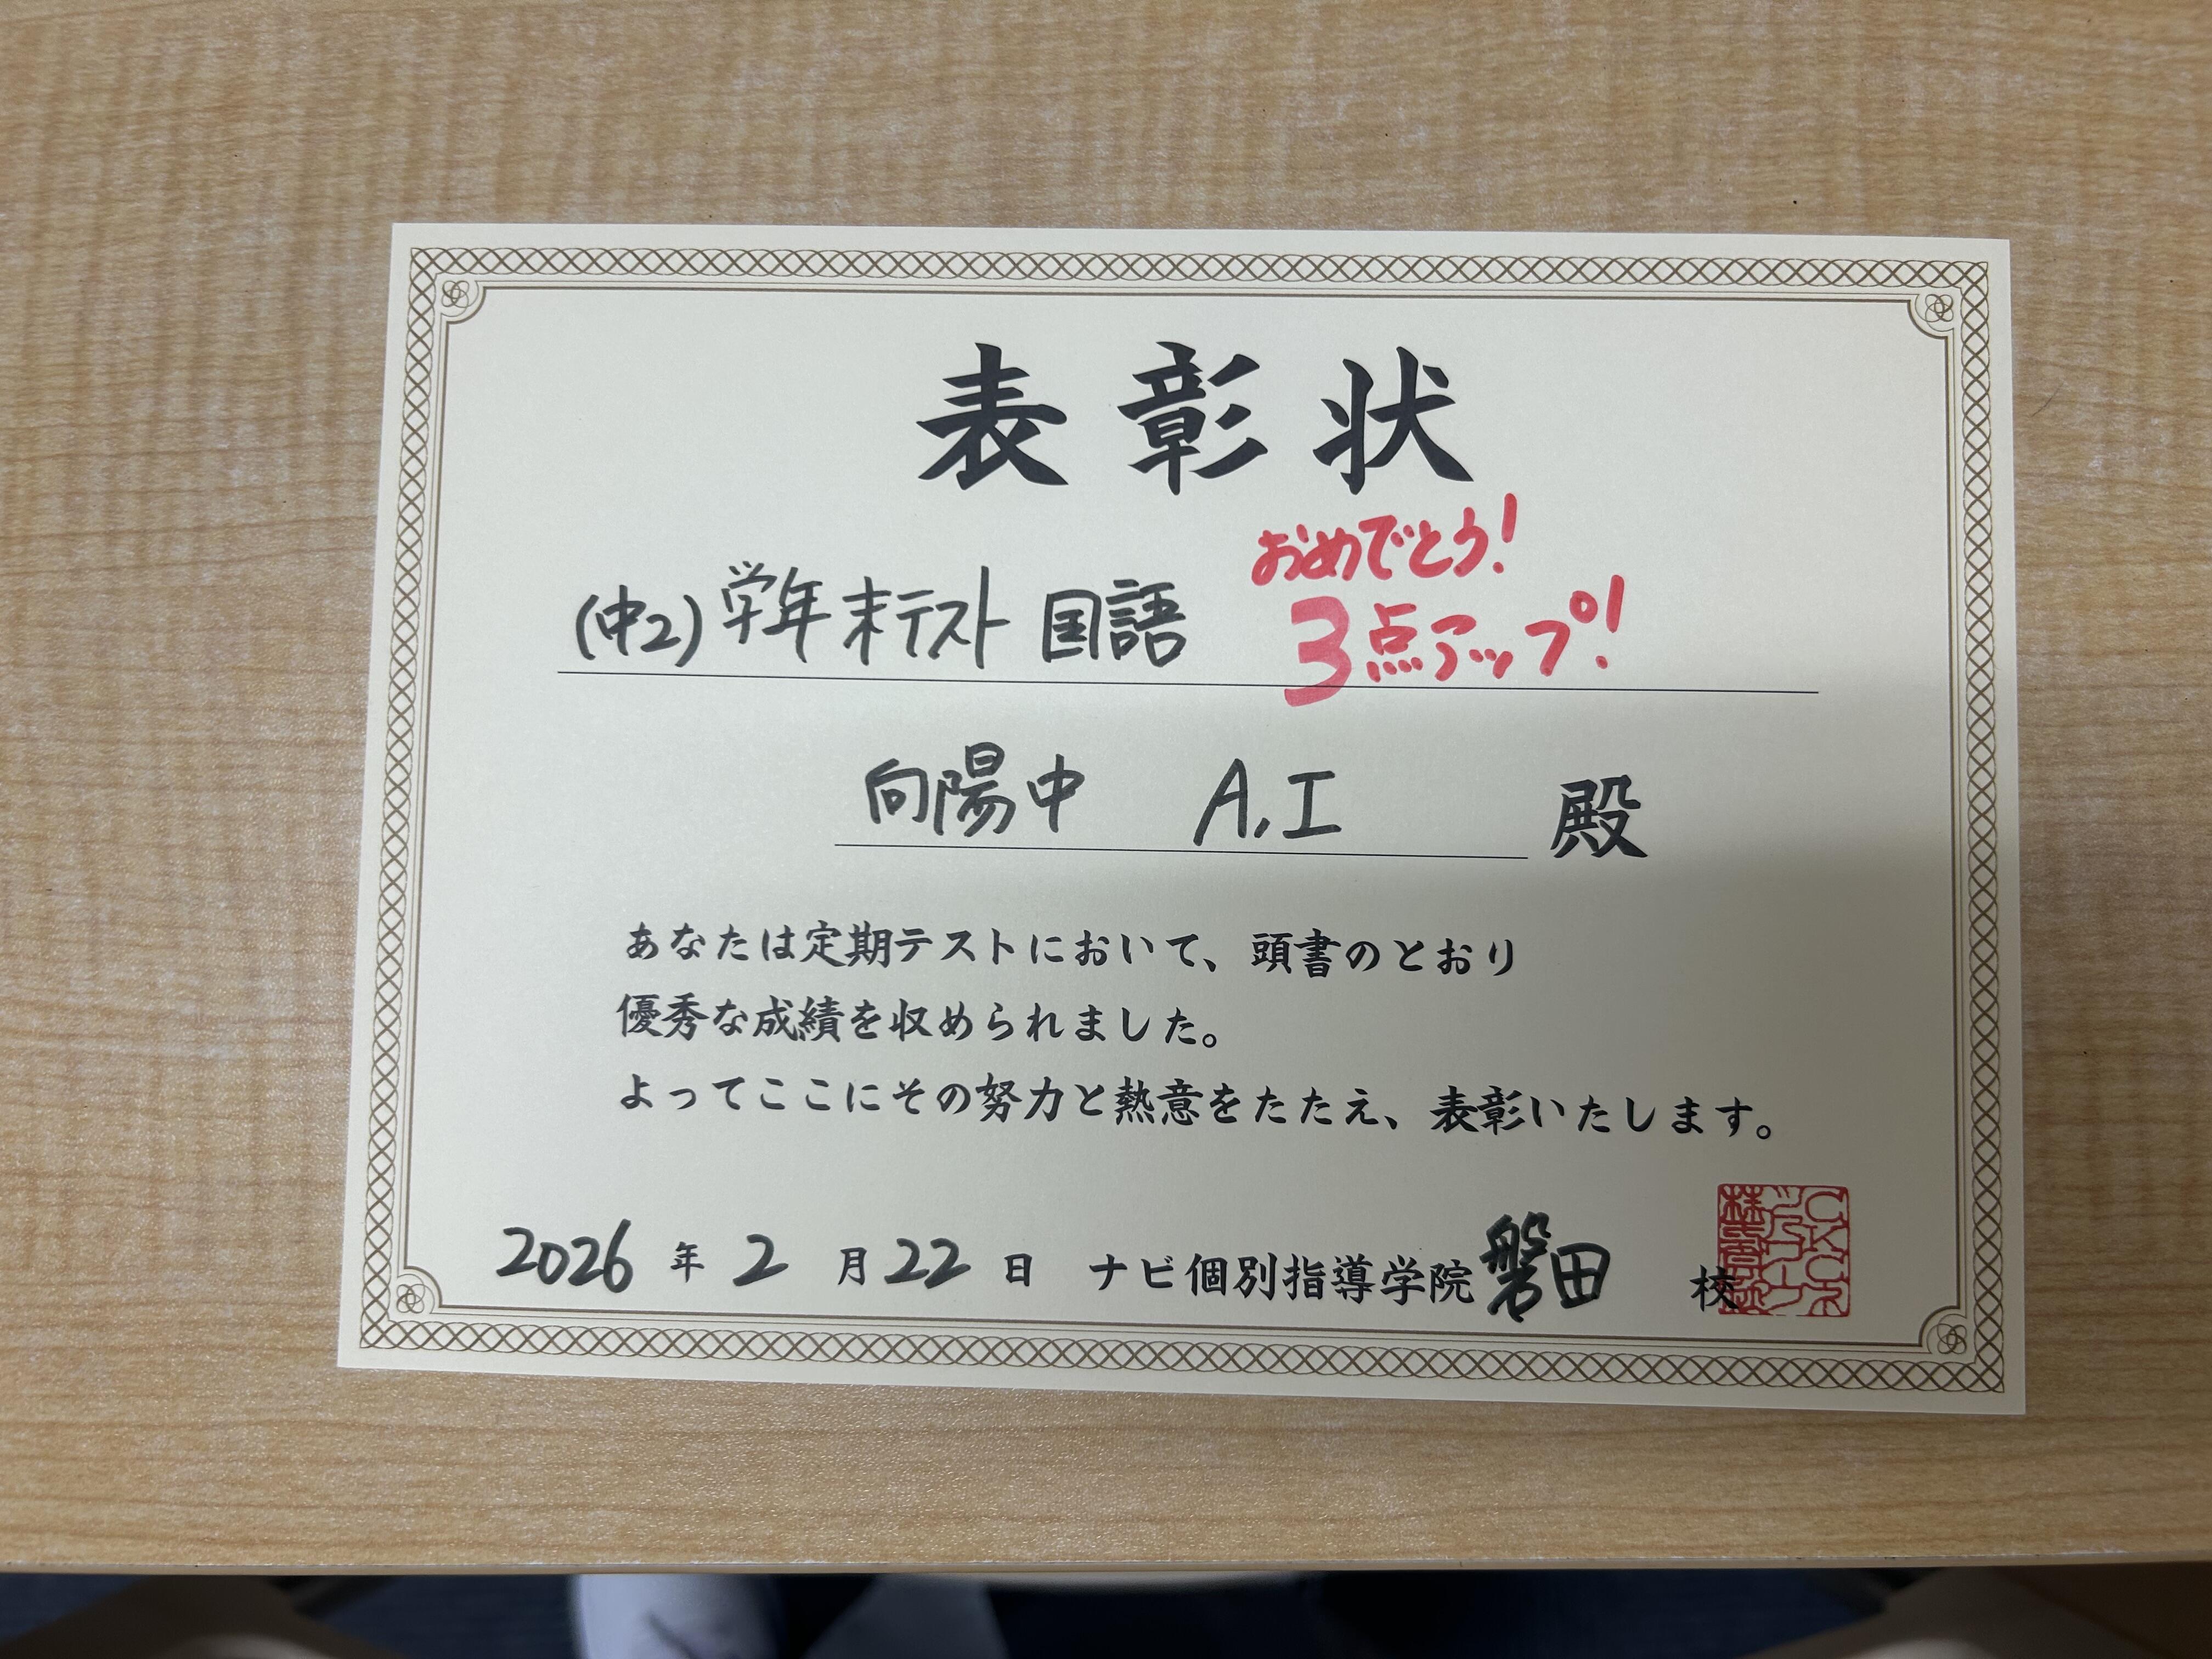 表彰状
おめでとう!
(中2)学年末テスト 国語 3点アップ!
向陽中 A.I 殿
あなたは定期テストにおいて、頭書のとおり
優秀な成績を収められました。
よってここにその努力と熱意をたたえ、表彰いたします。
2026年2月22日 ナビ個別指導学院 磐田 校